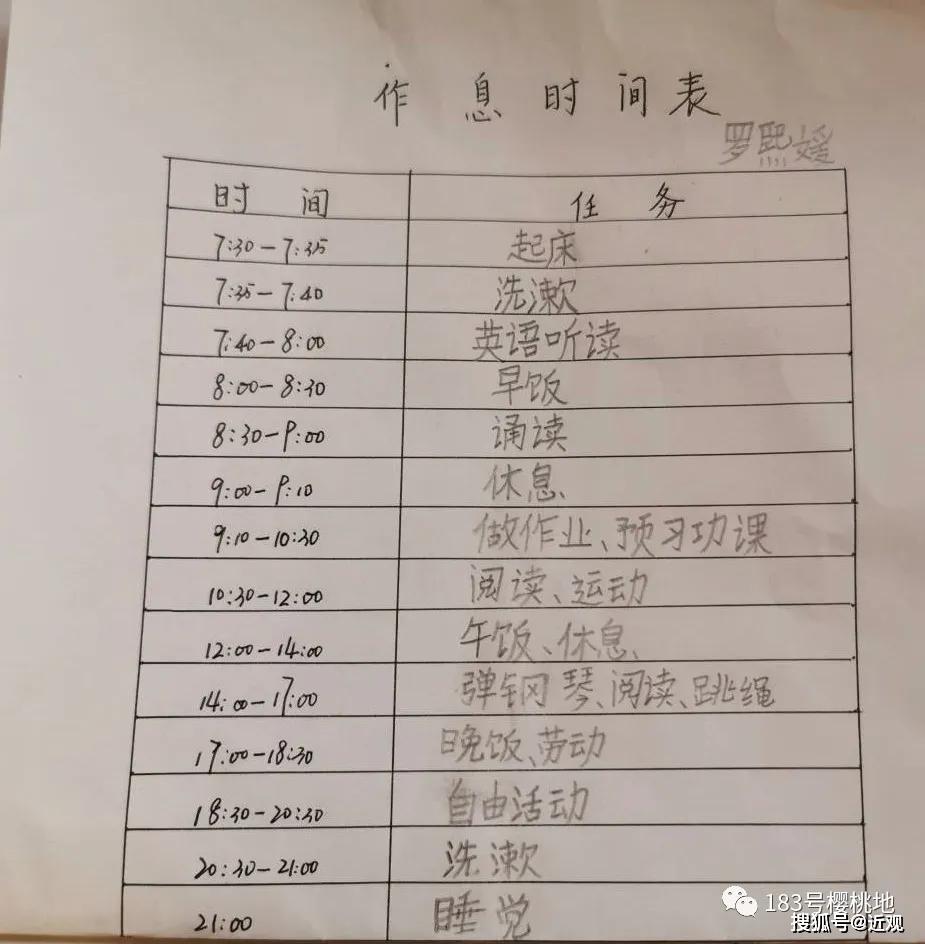 作息时间表
罗熙媛
时间 任务
7:30-7:35 起床
7:35-7:40 洗漱
7:40-8:00 英语听读
8:00-8:30 早饭
8:30-9:00 诵读
9:00-9:10 休息
9:10-10:30 做作业、预习功课
10:30-12:00 阅读、运动
12:00-14:00 午饭、休息、
14:00-17:00 弹钢琴、阅读、跳绳
17:00-18:30 晚饭、劳动
18:30-20:30 自由活动
20:30-21:00 洗漱
21:00 睡觉
183号樱桃地
搜狐号@近观